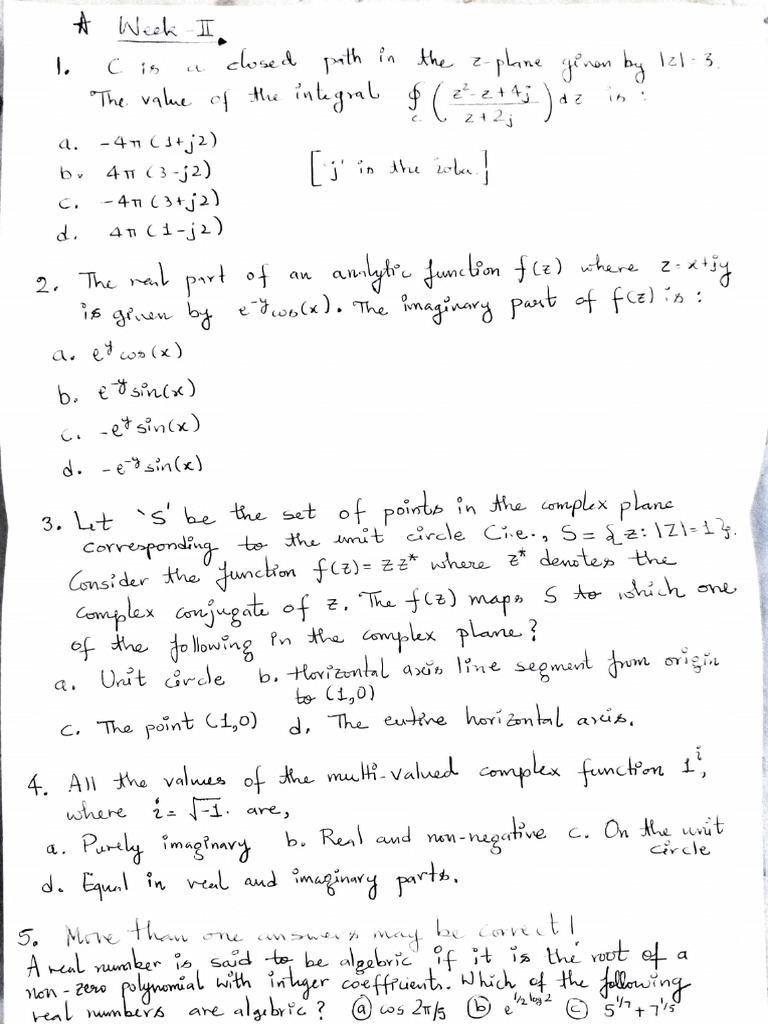 ★ Week - II.
1. C is a closed path in the z-plane given by |z| = 3.
The value of the integral ∮_C ((z² - z + 4j)/(z + 2j)) dz is :
a. -4π (1+j2)
b. 4π (3-j2)
['j' is the
c. -4π (3+j2)
d. 4π (1-j2)
2. The real part of an analytic function f(z) where z = x+jy
is given by e^-y cos(x). The imaginary part of f(z) is :
a. e^y cos(x)
b. e^-y sin(x)
c. -e^y sin(x)
d. -e^-y sin(x)
3. Let 'S' be the set of points in the complex plane
corresponding to the unit circle (i.e., S = {z: |z|=1}.
Consider the function f(z) = zz* where z* denotes the
complex conjugate of z. The f(z) maps S to which one
of the following in the complex plane?
a. Unit circle b. Horizontal axis line segment from origin
to (1,0)
c. The point (1,0) d. The entire horizontal axis.
4. All the values of the multi-valued complex function 1^i,
where i = √-1. are,
a. Purely imaginary b. Real and non-negative c. On the unit
circle
d. Equal in real and imaginary parts.
5. More than one answers may be correct!
A real number is said to be algebric if it is the root of a
non-zero polynomial with integer coefficients. Which of the following
real numbers are algebric? (a) cos 2π/5 (b) e^(1/2 log 2) (c) 5^1/7 + 7^1/5